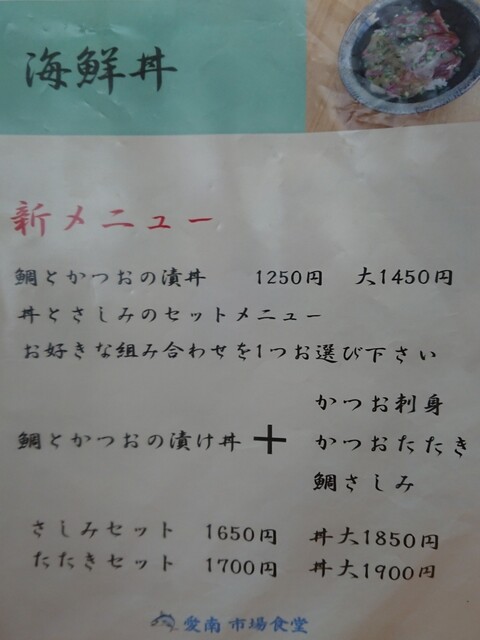 海鮮丼
新メニュー
鯛とかつおの漬丼 1250円 大1450円
丼とさしみのセットメニュー
お好きな組み合わせを1つお選び下さい
かつお刺身
鯛とかつおの漬け丼 + かつおたたき
鯛さしみ
さしみセット 1650円 丼大1850円
たたきセット 1700円 丼大1900円
愛南 市場食堂